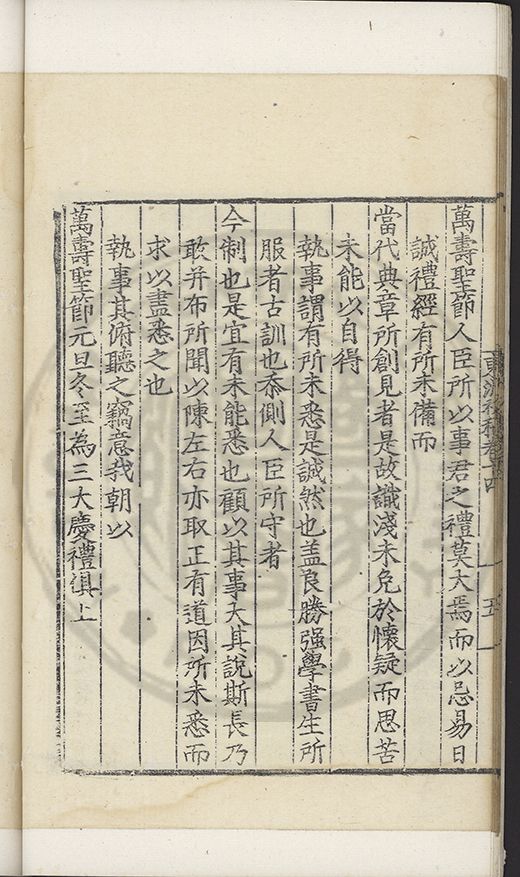 東洲初稿卷十四
五
萬壽聖節人臣所以事君之禮莫大焉而以忌易日
誠禮經有所未備而
當代典章所創見者是故識淺未免於懷疑而思苦
未能以自得
執事謂有所未悉是誠然也盖良勝强學書生所
服者古訓也忝側人臣所守者
今制也是宜有未能悉也顧以其事大其說斯長乃
敢并布所聞以陳左右亦取正有道因所未悉而
求以盡悉之也
執事其俯聽之竊意我朝以
萬壽聖節元旦冬至為三大慶禮俱上